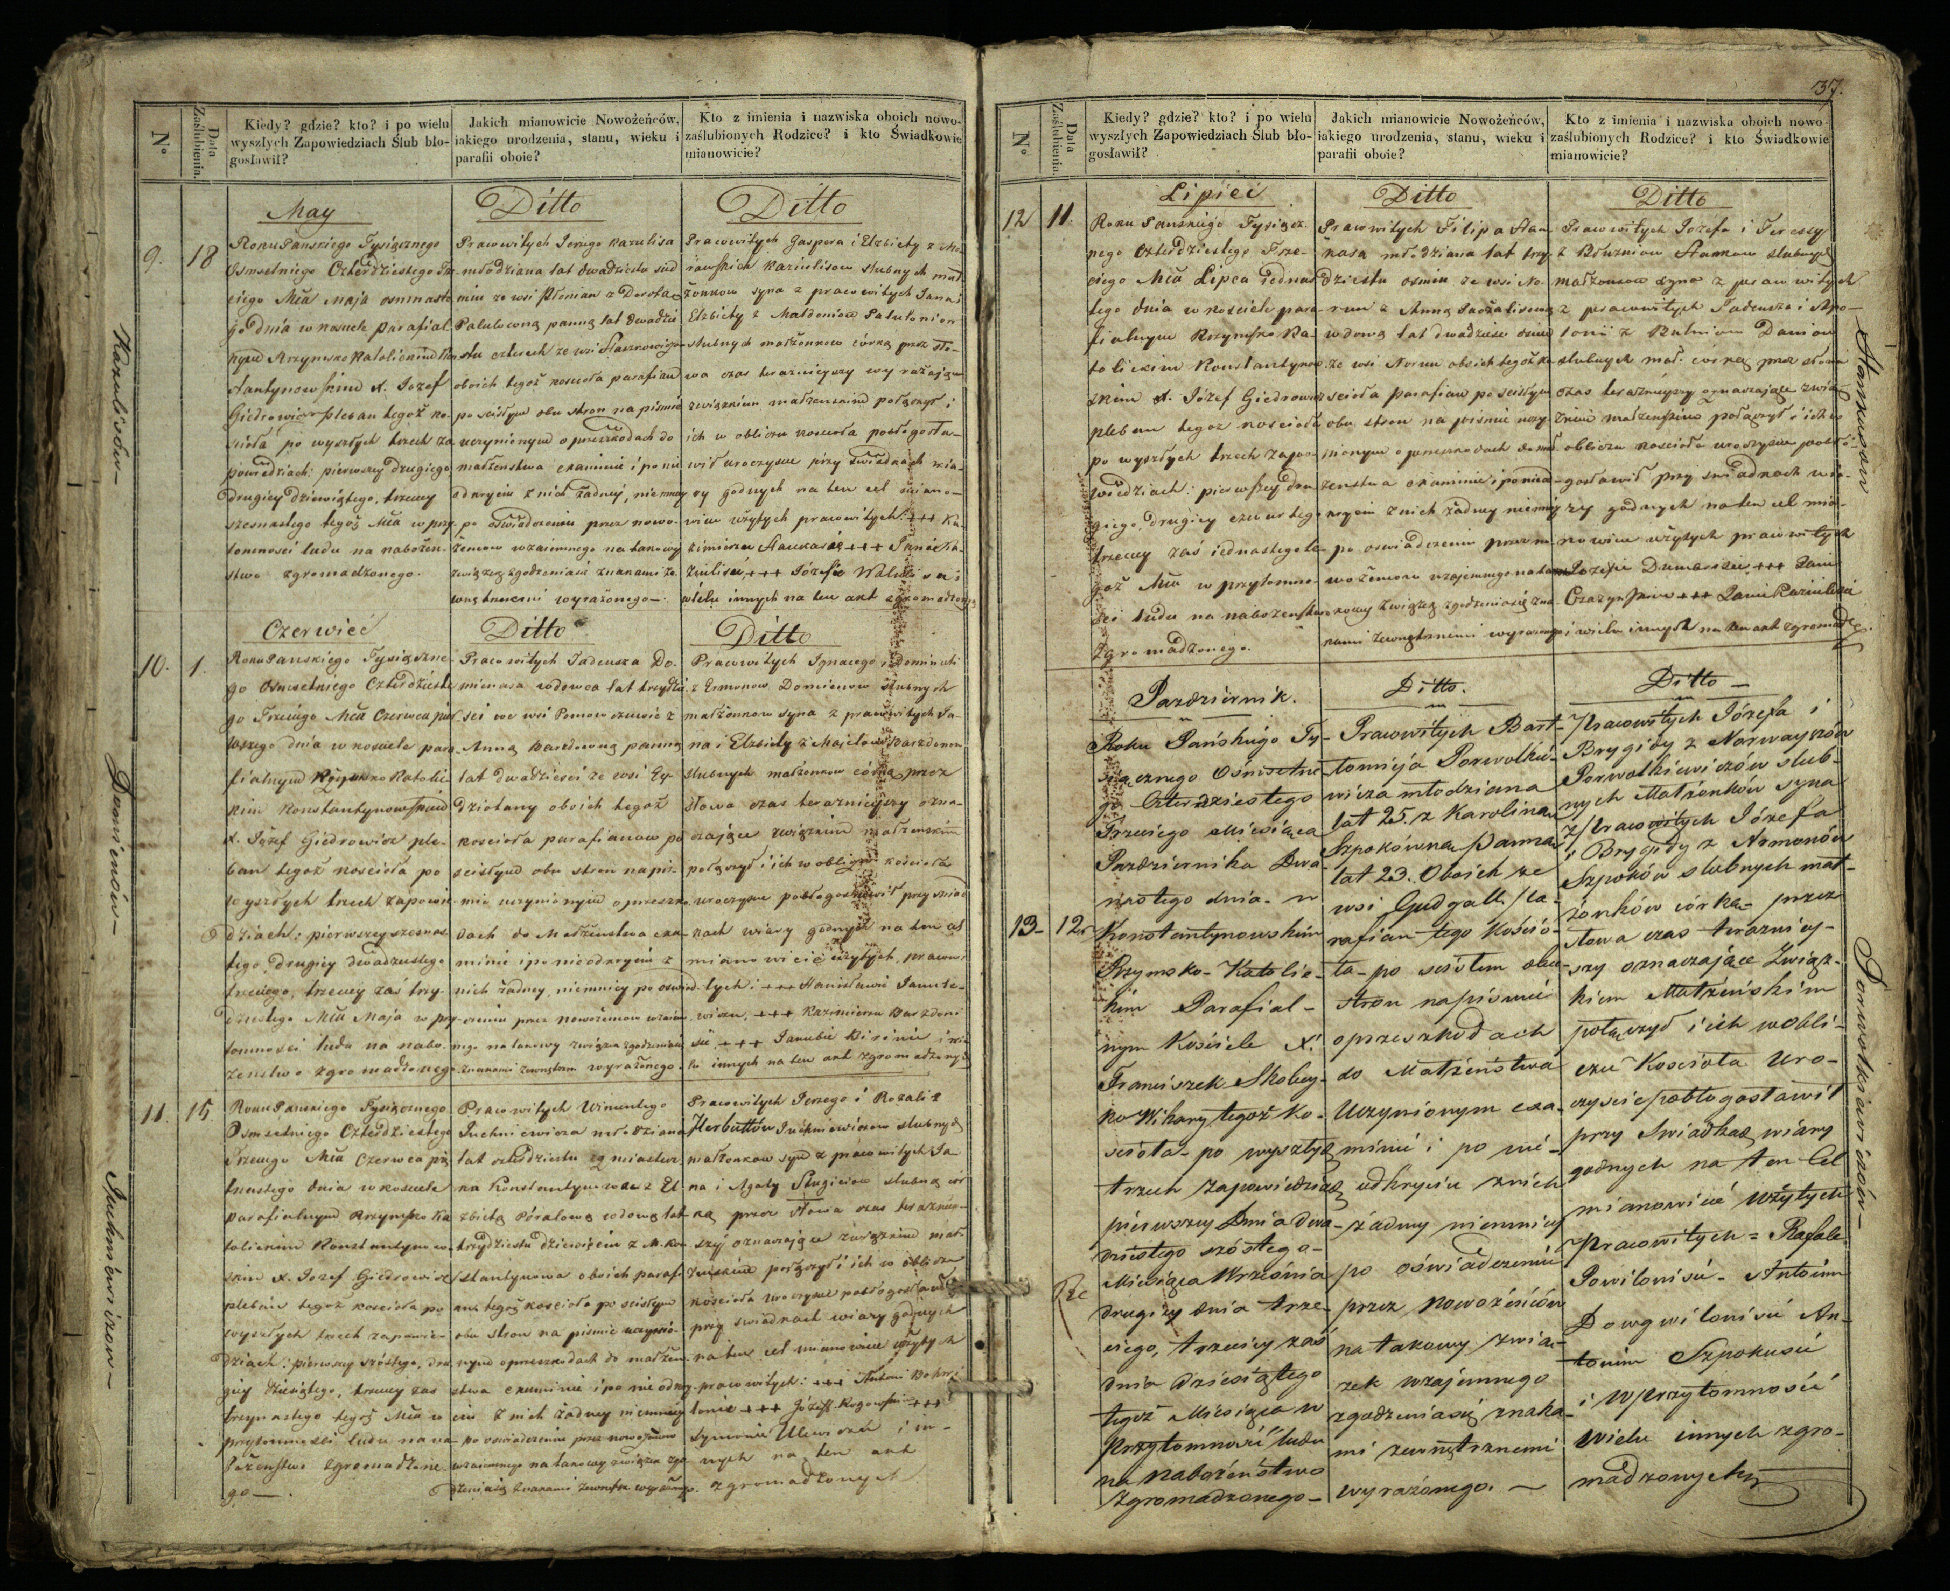 37.
N°
Data Zaślubienia.
Kiedy? gdzie? kto? i po wielu
wyszłych Zapowiedziach Ślub bło-
gosławił?
Jakich mianowicie Nowożeńców,
iakiego urodzenia, stanu, wieku i
parafii oboie?
Kto z imienia i nazwiska oboich nowo-
zaślubionych Rodzice? i kto Świadkowie
mianowicie?
May
Ditto
Ditto
9.
18
Roku Panskiego Tysiącznego
Osmsetniego Czterdziestego Trze
ciego Mca Maja osmnaste
go dnia w kosciele parafial
nym Rzymsko Katolickim Kon
stantynowskim X. Jozef
Giedrowicz pleban tegoż ko-
scioła po wyszłych trzech za
powiedziach: pierwszey drugiego
drugiey dziewiątego, trzeciey
szesnastego tegoż Mca w przy
tomnosci ludu na nabożeń-
stwo zgromadzonego.
Pracowitych Jerzego Kazulisa
młodziana lat dwadziescia sied
obóch tegoż koscioła parafian
po scisłym obu stron na piśmie
uczynionym o przeszkodach do
małżenstwa examinie i po nie
odkryciu z nich żadney, niemniey
po oświadczeniu przez nowo-
żencow wzaiemnego na takowy
związek zgodzenia się znakami ze
wnętrznemi wyrażonego.
Pracowitych Gaspera i Elżbiety z
żonkow syna z pracowitych Jana i
slubnych małżonkow córką przez sło-
wa czas teraźnieyszy wyrażające
związkiem małżenskim połączył i
ich w obliczu koscioła pobłogosła-
wił uroczyscie przy świadkach wia-
ry godnych na ten cel miano-
wicie użytych pracowitych: +++ Ka
wielu innych na ten akt zgromadzonych
Czerwiec
Ditto
Ditto
10.
1.
Roku Panskiego Tysiączne-
go Osmsetniego Czterdzieste
go Trzeciego Mca Czerwca pier
wszego dnia w kosciele para-
fialnym Rzymsko Katolic-
kim Konstantynowskim
X. Jozef Giedrowicz ple-
ban tegoż koscioła po
wyszłych trzech zapowie-
dziach: pierwszey szesnas-
tego, drugiey dwudziestego
trzeciego, trzeciey zas trzy-
dziestego Mca Maja w przy
tomnosci ludu na nabo-
żenstwo zgromadzonego
Pracowitych Tadeusza Do-
mienasa wdowca lat trzydzie
Anną Barzdowną panną
lat dwadziescia ze wsi
oboich tegoż
koscioła parafianow po
scisłym obu stron na piś-
mie uczynionym o przeszko
dach do Małżenstwa exa-
minie i po nieodkryciu z
nich żadney, niemniey po oswiad-
czeniu przez nowożencow wzaiem
nego na takowy związek zgodzenia się
znakami zewnętrznemi wyrażonego.
Pracowitych Ignacego i Dominiki
z Ermonow Domienow slubnych
małżonkow syna z pracowitych Ja-
na i Elżbiety z
slubnych małżonkow córką przez
słowa czas teraźnieyszy ozna-
czające związkiem małżenskim
połączył i ich w obliczu kościoła
uroczyscie pobłogosławił przy swiad
kach wiary godnych na ten cel
mianowicie użytych, pracowi
tych: +++ Stanisławie
+++ Kazimierzu
+++ Jakubie
lu innych na ten akt zgromadzonych
11.
15.
Roku Panskiego Tysiącznego
Osmsetniego Czterdziestego
Trzeciego Mca Czerwca pię
tnastego dnia w kosciele
parafialnym Rzymsko Ka
tolickim Konstantynow-
skim X. Jozef Giedrowicz
pleban tegoż koscioła po
wyszłych trzech zapowie-
dziach: pierwszey szóstego, dru
giey dziesiątego, trzeciey zas
trzynastego tegoż Mca w
przytomnosci ludu na na
bożenstwo zgromadzone
go —.
Pracowitych Wincentego
Juchniewicza młodziana
lat czterdziestu z miastecz
ka Konstantynowa z El
żbietą wdową lat
trzydziestu dziewięciu z M. Kon
stantynowa oboich parafi
an tegoż koscioła po scisłym
obu stron na pismie uczynio-
nym o przeszkodach do małżen-
stwa examinie i po nie odkry-
ciu z nich żadney niemniey
po oswiadczeniu przez nowożencow
wzaiemnego na takowy związek zgo
dzenia się znakami zewnętrz. wyrażonego.
Pracowitych Jerzego i Rozalii z
Herbuttów Juchniewiczow slubnych
małżonkow syna z pracowitych Ja
na i Agaty slubną cór
ką przez słowa czas teraźniey-
szy oznaczające związkiem mał
żenskim połączył i ich w obliczu
koscioła uroczyscie pobłogosławił
przy swiadkach wiary godnych
na ten cel mianowicie użytych
pracowitych: +++ Antoni
+++ Józef +++
Symonie i in-
nych na ten akt
zgromadzonych
Kazulisów —
Domienów —
Juchniewiczow —
N°
Data Zaślubienia.
Kiedy? gdzie? kto? i po wielu
wyszłych Zapowiedziach Ślub bło-
gosławił?
Jakich mianowicie Nowożeńców,
iakiego urodzenia, stanu, wieku i
parafii oboie?
Kto z imienia i nazwiska oboich nowo-
zaślubionych Rodzice? i kto Świadkowie
mianowicie?
Lipiec
Ditto
Ditto
12
11.
Roku Panskiego Tysiącz-
nego Czterdziestego Trze-
ciego Mca Lipca Jednas
tego dnia w kościele para-
fialnym Rzymsko Ka-
tolickim Konstantynow
skim X. Józef Giedrowicz
pleban tegoż koscioła
po wyszłych trzech zapo-
wiedziach: pierwszey dru
giego, drugiey czwartego
trzeciey zaś jednastego te-
goż Mca w przytomno-
sci ludu na nabożenstwo
zgromadzonego.
Pracowitych Filipa Stan-
kasa młodziana lat trzy
dziestu osmiu ze wsi No-
run z Anną
wdową lat dwadziescia osmiu
ze wsi Norun oboich tegoż ko
scioła parafian po scisłym
obu stron na pismie uczy-
nionym o przeszkodach do mał
żenstwa examinie i po nieod-
kryciu z nich żadney niemniey
po oswiadczeniu przez no-
wożencow wzajemnego na ta
kowy związek zgodzenia się zna
kami zewnętrznemi wyrażonego
Pracowitych Jozefa i Teressy
z Stankow slubnych
małżonkow syna z pracowitych
z pracowitych Tadeusza i Apo-
lonii z Damiow
slubnych małż. córką przez słowa
czas teraznieyszy oznaczające zwią
zkiem małżenskim połączył i ich w
obliczu koscioła uroczyscie pobło-
gosławił przy swiadkach wia-
ry godnych na ten cel mia-
nowicie użytych pracowitych
Jozefie +++ Janie
+++ Janie Kazulisie
i wielu innych na ten akt zgromadz.
Pazdziernik.
Ditto.
Ditto —
13-
12.
Roku Pańskiego Ty-
siącznego Ośmsetne-
go Czterdziestego
Trzeciego Miesiąca
Pazdziernika Dwu-
nastego dnia w
Konstantynowskim
Rzymsko-Katolic-
kim Parafial-
nym Kościele X.
Franciszek Skobey-
ko Wikary tegoż Ko-
scioła po wyszłych
trzech zapowiedziach
pierwszey Dnia dwu-
dziestego szóstego
Miesiąca Września
drugiey dnia trze-
ciego, trzeciey zaś
dnia dziesiątego
tegoż Miesiąca w
przytomności ludu
na nabożeństwo
Zgromadzonego —
Pracowitych Bart-
łomieja Porwolkie-
wicza młodziana
lat 25, z Karoliną
Szpokówną Panną
lat 23. Oboich ze
wsi Gudgall Pa-
rafian tego Kościo-
ła po scisłem obu
stron na piśmie
o przeszkodach
do Małżeństwa
Uczynionym exa-
minie i po nie-
odkryciu z nich
żadney niemniey
po oświadczeniu
przez nowożeńców
na takowy zwią-
zek wzajemnego
zgodzenia się znaka-
mi zewnętrznemi
wyrażonego. —
Pracowitych Józefa i
Brygidy z Norwayszów
Porwolkiewiczów slub-
nych Małżonków syna
z Pracowitych Józefa
i Brygidy z Armonów
Szpoków slubnych mał-
żonków córką przez
słowa czas teraźniey-
szy oznaczające Związ-
kiem Małżeńskim
połączył i ich w obli-
czu Kościoła Uro-
czyscie pobłogosławił
przy Swiadkach wiary
godnych na ten Cel
mianowicie użytych
Pracowitych = Rafale
Powilonisie - Antonim
Dowgwilonisie An-
tonim Szpokusie
i w przytomnosci
wielu innych zgro-
madzonych
Stankusow
Porwolkiewiczów —